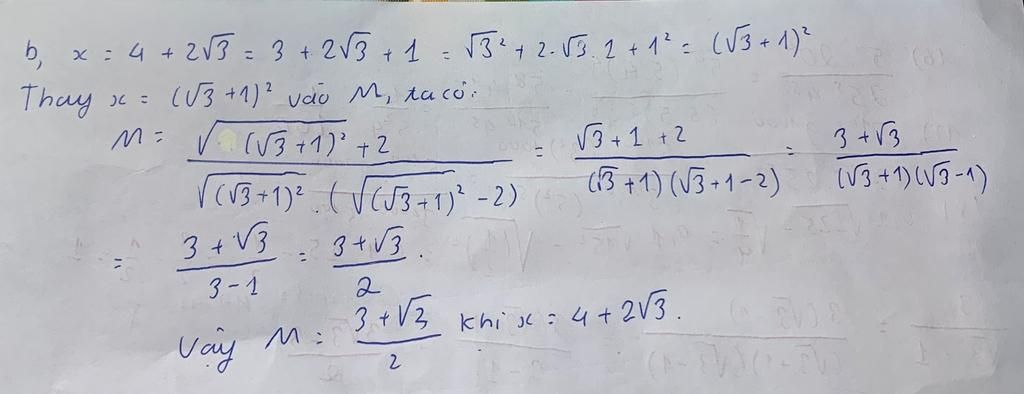 b, x = 4 + 2√3 = 3 + 2√3 + 1 = √3² + 2.√3.1 + 1² = (√3 + 1)²
Thay x = (√3 + 1)² vào M, ta có:
M = (√(√3 + 1)² + 2) / (√(√3 + 1)² . (√(√3 + 1)² - 2)) = (√3 + 1 + 2) / ((√3 + 1)(√3 + 1 - 2)) = (3 + √3) / ((√3 + 1)(√3 - 1))
= (3 + √3) / (3 - 1) = (3 + √3) / 2 .
Vậy M = (3 + √3) / 2 khi x = 4 + 2√3.